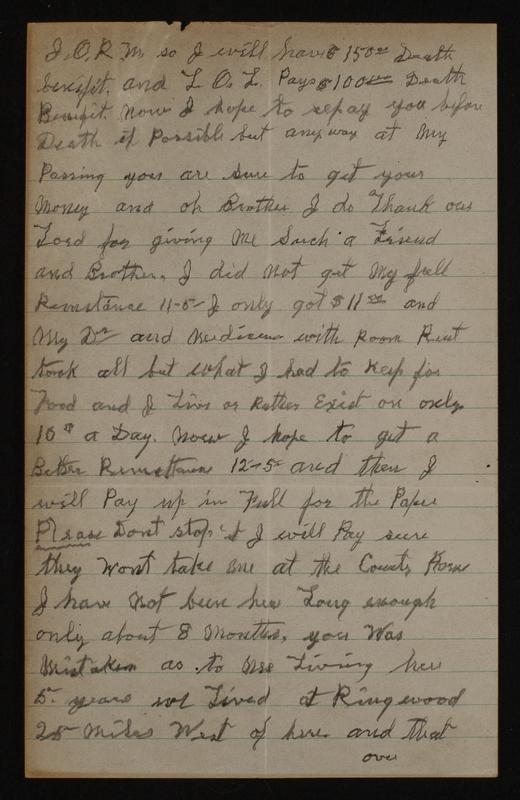 I.O.R.M. so I will have $150.00 Death
benefit. and L.O.L. Pays $100.00 Death
Benefit. Now I hope to repay you before
Death if Possible but any way at My
Passing you are sure to get your
Money and oh Brother I do Thank our
Lord for giving Me Such a Friend
and Brother, I did not get My full
Remetance 11-5- I only got $11.00 and
My Dr and Medicine with Room Rent
took all but what I had to Keep for
Food and I Live or Rather Exist on only
10¢ a Day. Now I hope to get a
Better Remettance 12-5- and then I
will Pay up in Full for the Paper
Please Dont stop it I will Pay sure
they Wont take me at the County Home
I have Not been here Long enough
only about 8 Months, you Was
Mistaken as to Me Living here
5 years we Lived at Ringwood
25 Miles West of here and that
over